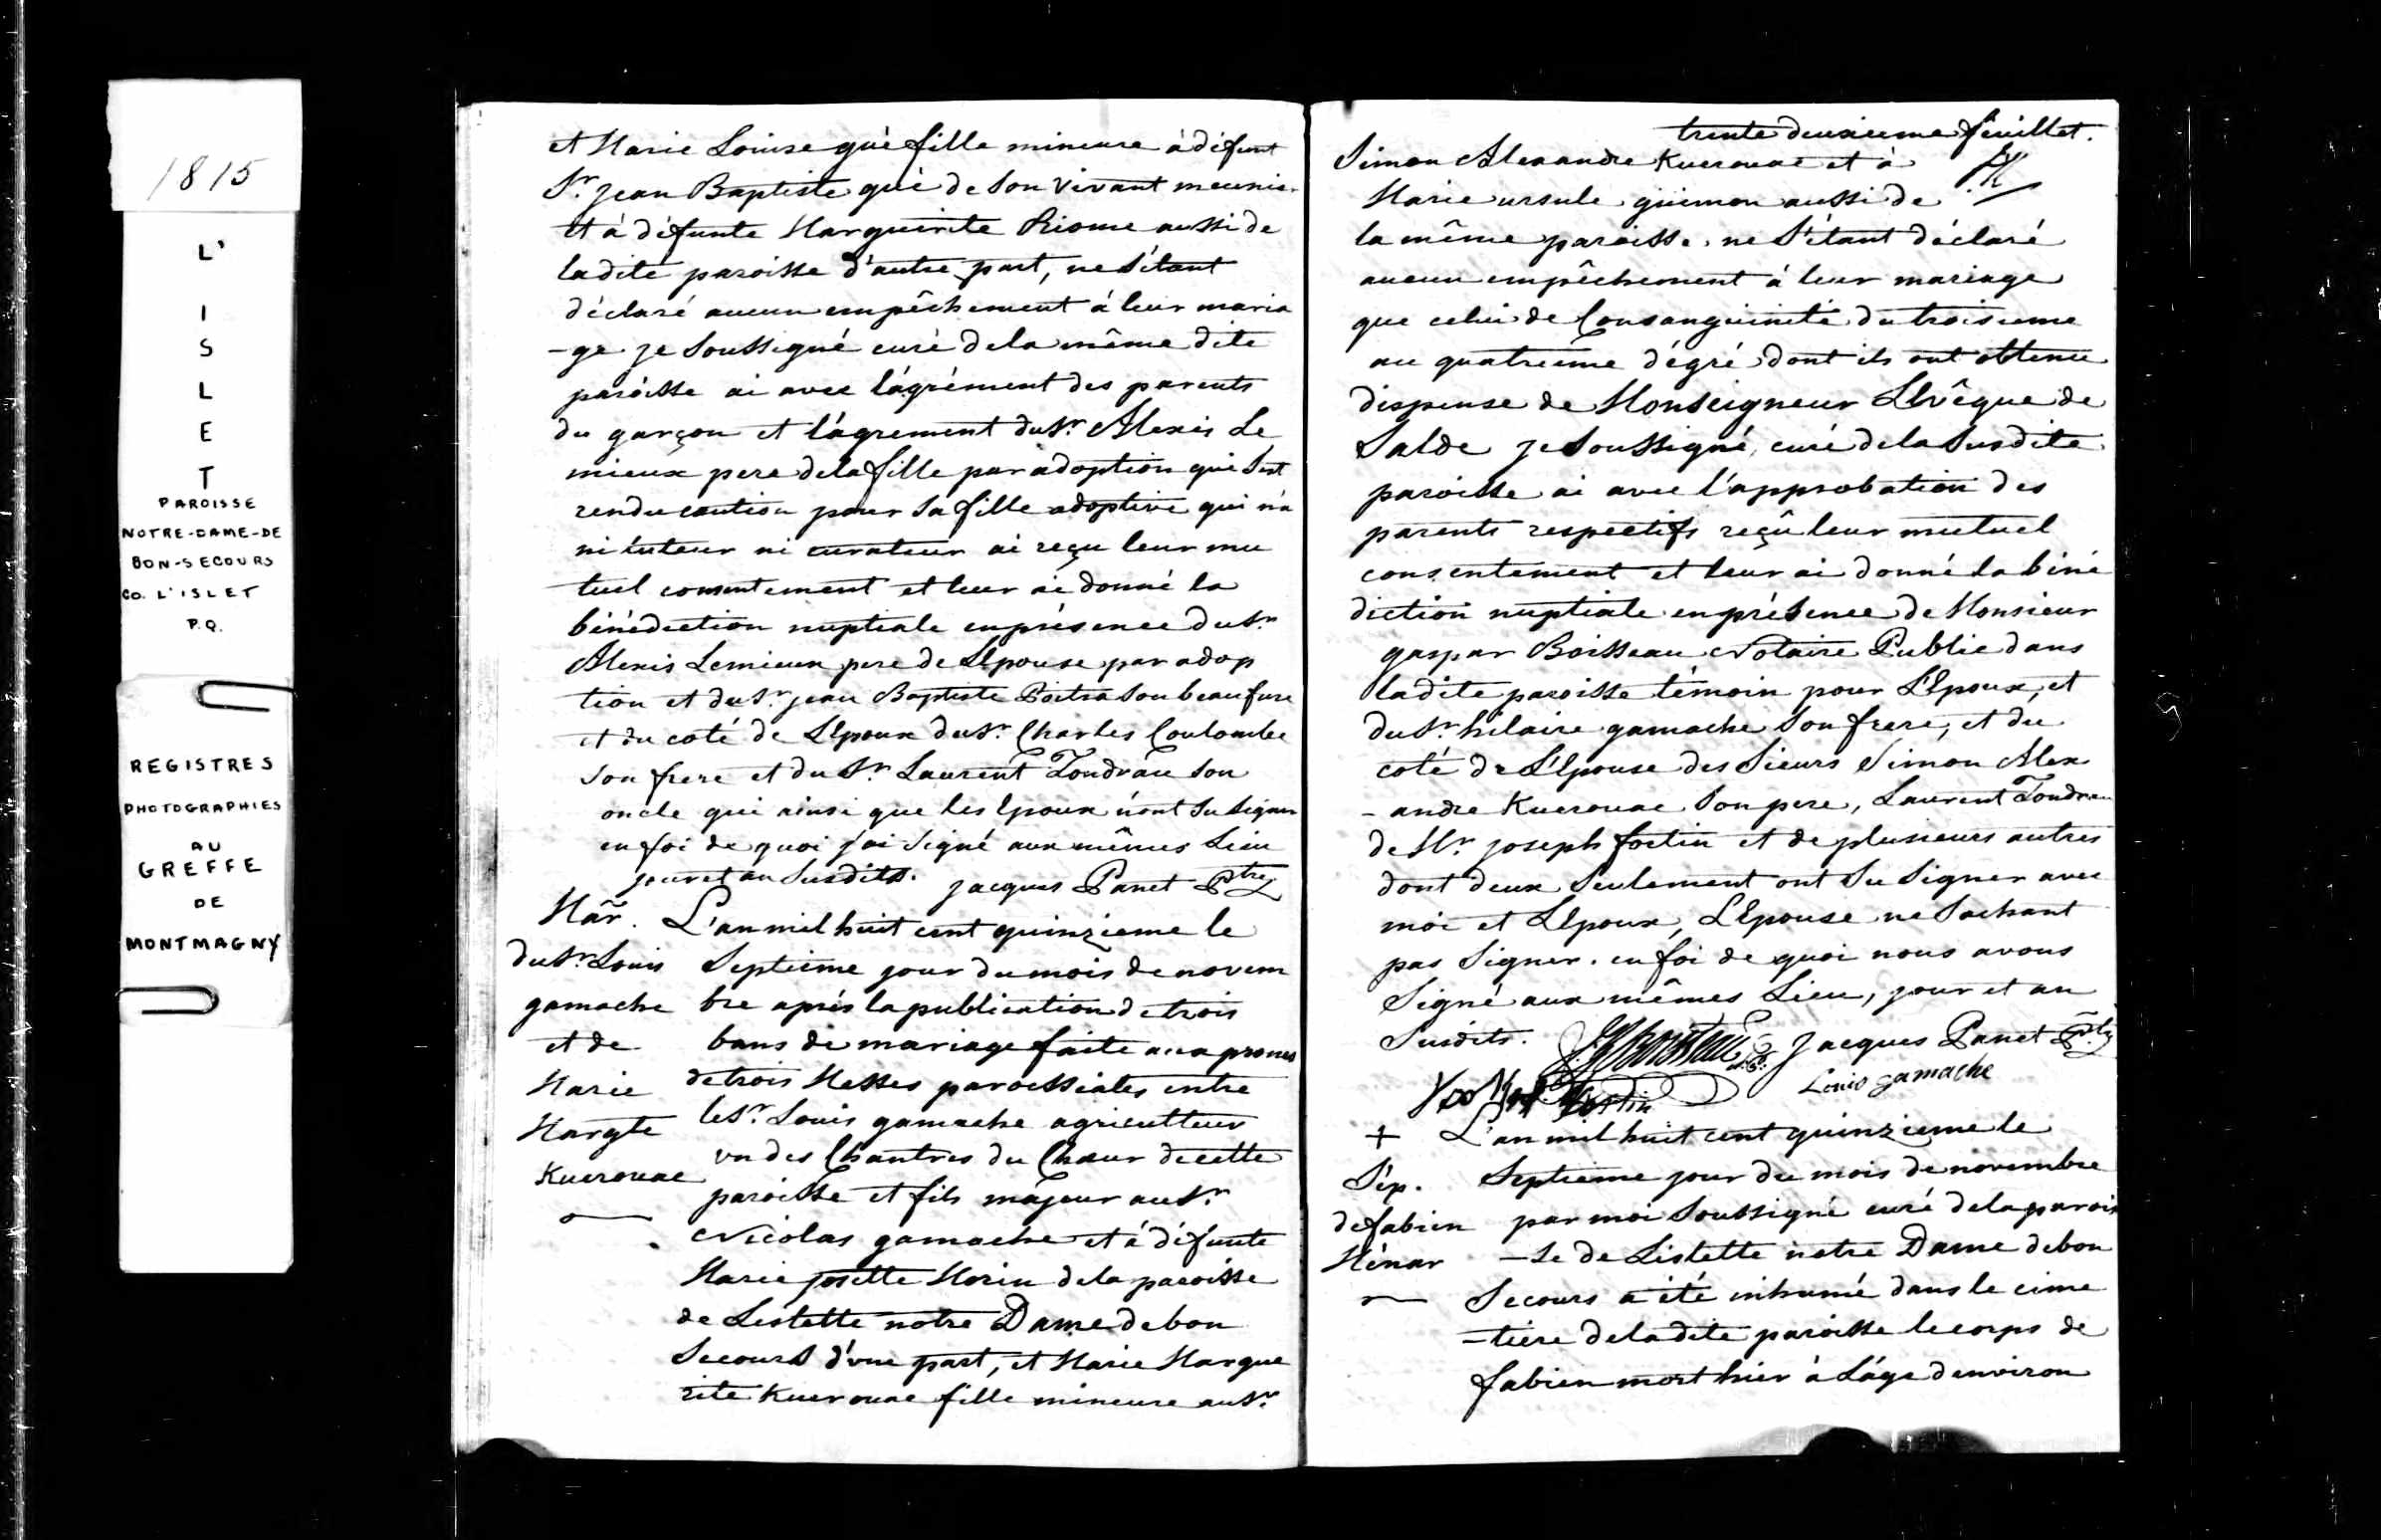 1815
L'
I
S
L
E
T
PAROISSE
NOTRE-DAME-DE
BON-SECOURS
CO. L'ISLET
P.Q.
REGISTRES
PHOTOGRAPHIES
AU
GREFFE
DE
MONTMAGNY
et Marie Louise gué fille mineure à défunt
Sr. jean Baptiste gué de son vivant meunier
et à défunte Marguerite Riome aussi de
ladite paroisse d'autre part, ne s'étant
déclaré aucun empêchement à leur maria
-ge je soussigné curé dela même dite
paroisse ai avec l'agrément des parents
du garçon et l'agrement du Sr. Alexis Le
mieux pere dela fille par adoption qui s'est
rendu caution pour sa fille adoptive qui n'a
ni tuteur ni curateur ai reçu leur mu
tuel consentement et leur ai donné la
bénédiction nuptiale en présence du Sr.
Alexis Lemieux pere de L'Epouse par adop
tion et du Sr. jean Baptiste Poitra son beaufrere
et du coté de L'Epoux du Sr. Charles Coulombe
son frere et du Sr. Laurent Tondrau son
oncle qui ainsi que les Epoux n'ont su signer
en foi de quoi j'ai signé aux mêmes Lieu
jour et an susdits. jacques Panet Ptre
Mar. L'an mil huit cent quinzieme le
du Sr. Louis septieme jour du mois de novem
gamache bre aprés la publication de trois
et de bans de mariage faite aux prones
Marie de trois Messes paroissiales entre
Margte le Sr. Louis gamache agriculteur
Kuerouac un des Chantres du Chœur de cette
paroisse et fils majeur au Sr.
Nicolas gamache et à défunte
Marie josette Morin dela paroisse
de Lislette notre Dame de bon
Secours d'une part, et Marie Margue
rite Kuerouac fille mineure au Sr.
trente deuxieme feuillet.
Simon Alexandre Kuerouac et à
Marie ursule guimon aussi de
la même paroisse. ne s'étant déclaré
aucun empêchement à leur mariage
que celui de Consanguinité du troisieme
au quatrieme dégré dont ils ont obtenu
dispense de Monseigneur L'Evêque de
Salde je soussigné curé dela susdite
paroisse ai avec l'approbation des
parents respectifs reçû leur mutuel
consentement et leur ai donné la béné
diction nuptiale en présence de Monsieur
gaspar Boisseau Notaire Public dans
ladite paroisse témoin pour L'Epoux, et
du Sr. hilaire gamache son frere, et du
coté de L'Epouse des Sieurs Simon Alex
-andre Kuerouac son pere, Laurent Tondrau
de Mr. joseph fortin et de plusieurs autres
dont deux seulement ont su signer avec
moi et L'Epoux, L'Epouse ne sachant
pas signer. en foi de quoi nous avons
signé aux mêmes Lieu, jour et an
susdits. Boisseau N.P. Jacques Panet Ptre
Fortin Louis gamache
+ L'an mil huit cent quinzieme le
Sép. septieme jour du mois de novembre
de fabien par moi soussigné curé dela parois
Ménar -se de Lislette notre Dame de bon
Secours a été inhumé dans le cime
-tiere de ladite paroisse le corps de
fabien mort hier à L'age d'environ